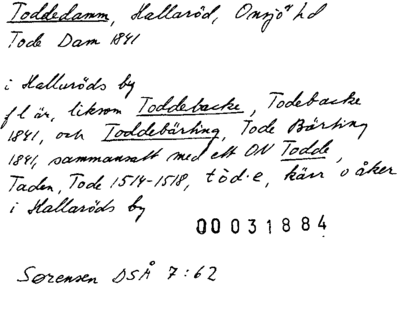 Toddedamm, Hallaröd, Onsjö hd
Tode Dam 1841
i Hallaröds by
f l är, liksom Toddebacke, Todebacke
1841, och Toddebärting, Tode Bärting
1841, sammansatt med ett ON Todde,
Taden, Tode 1514-1518, tòd·e, kärr o åker
i Hallaröds by
00031884
Sørensen DSÅ 7:62